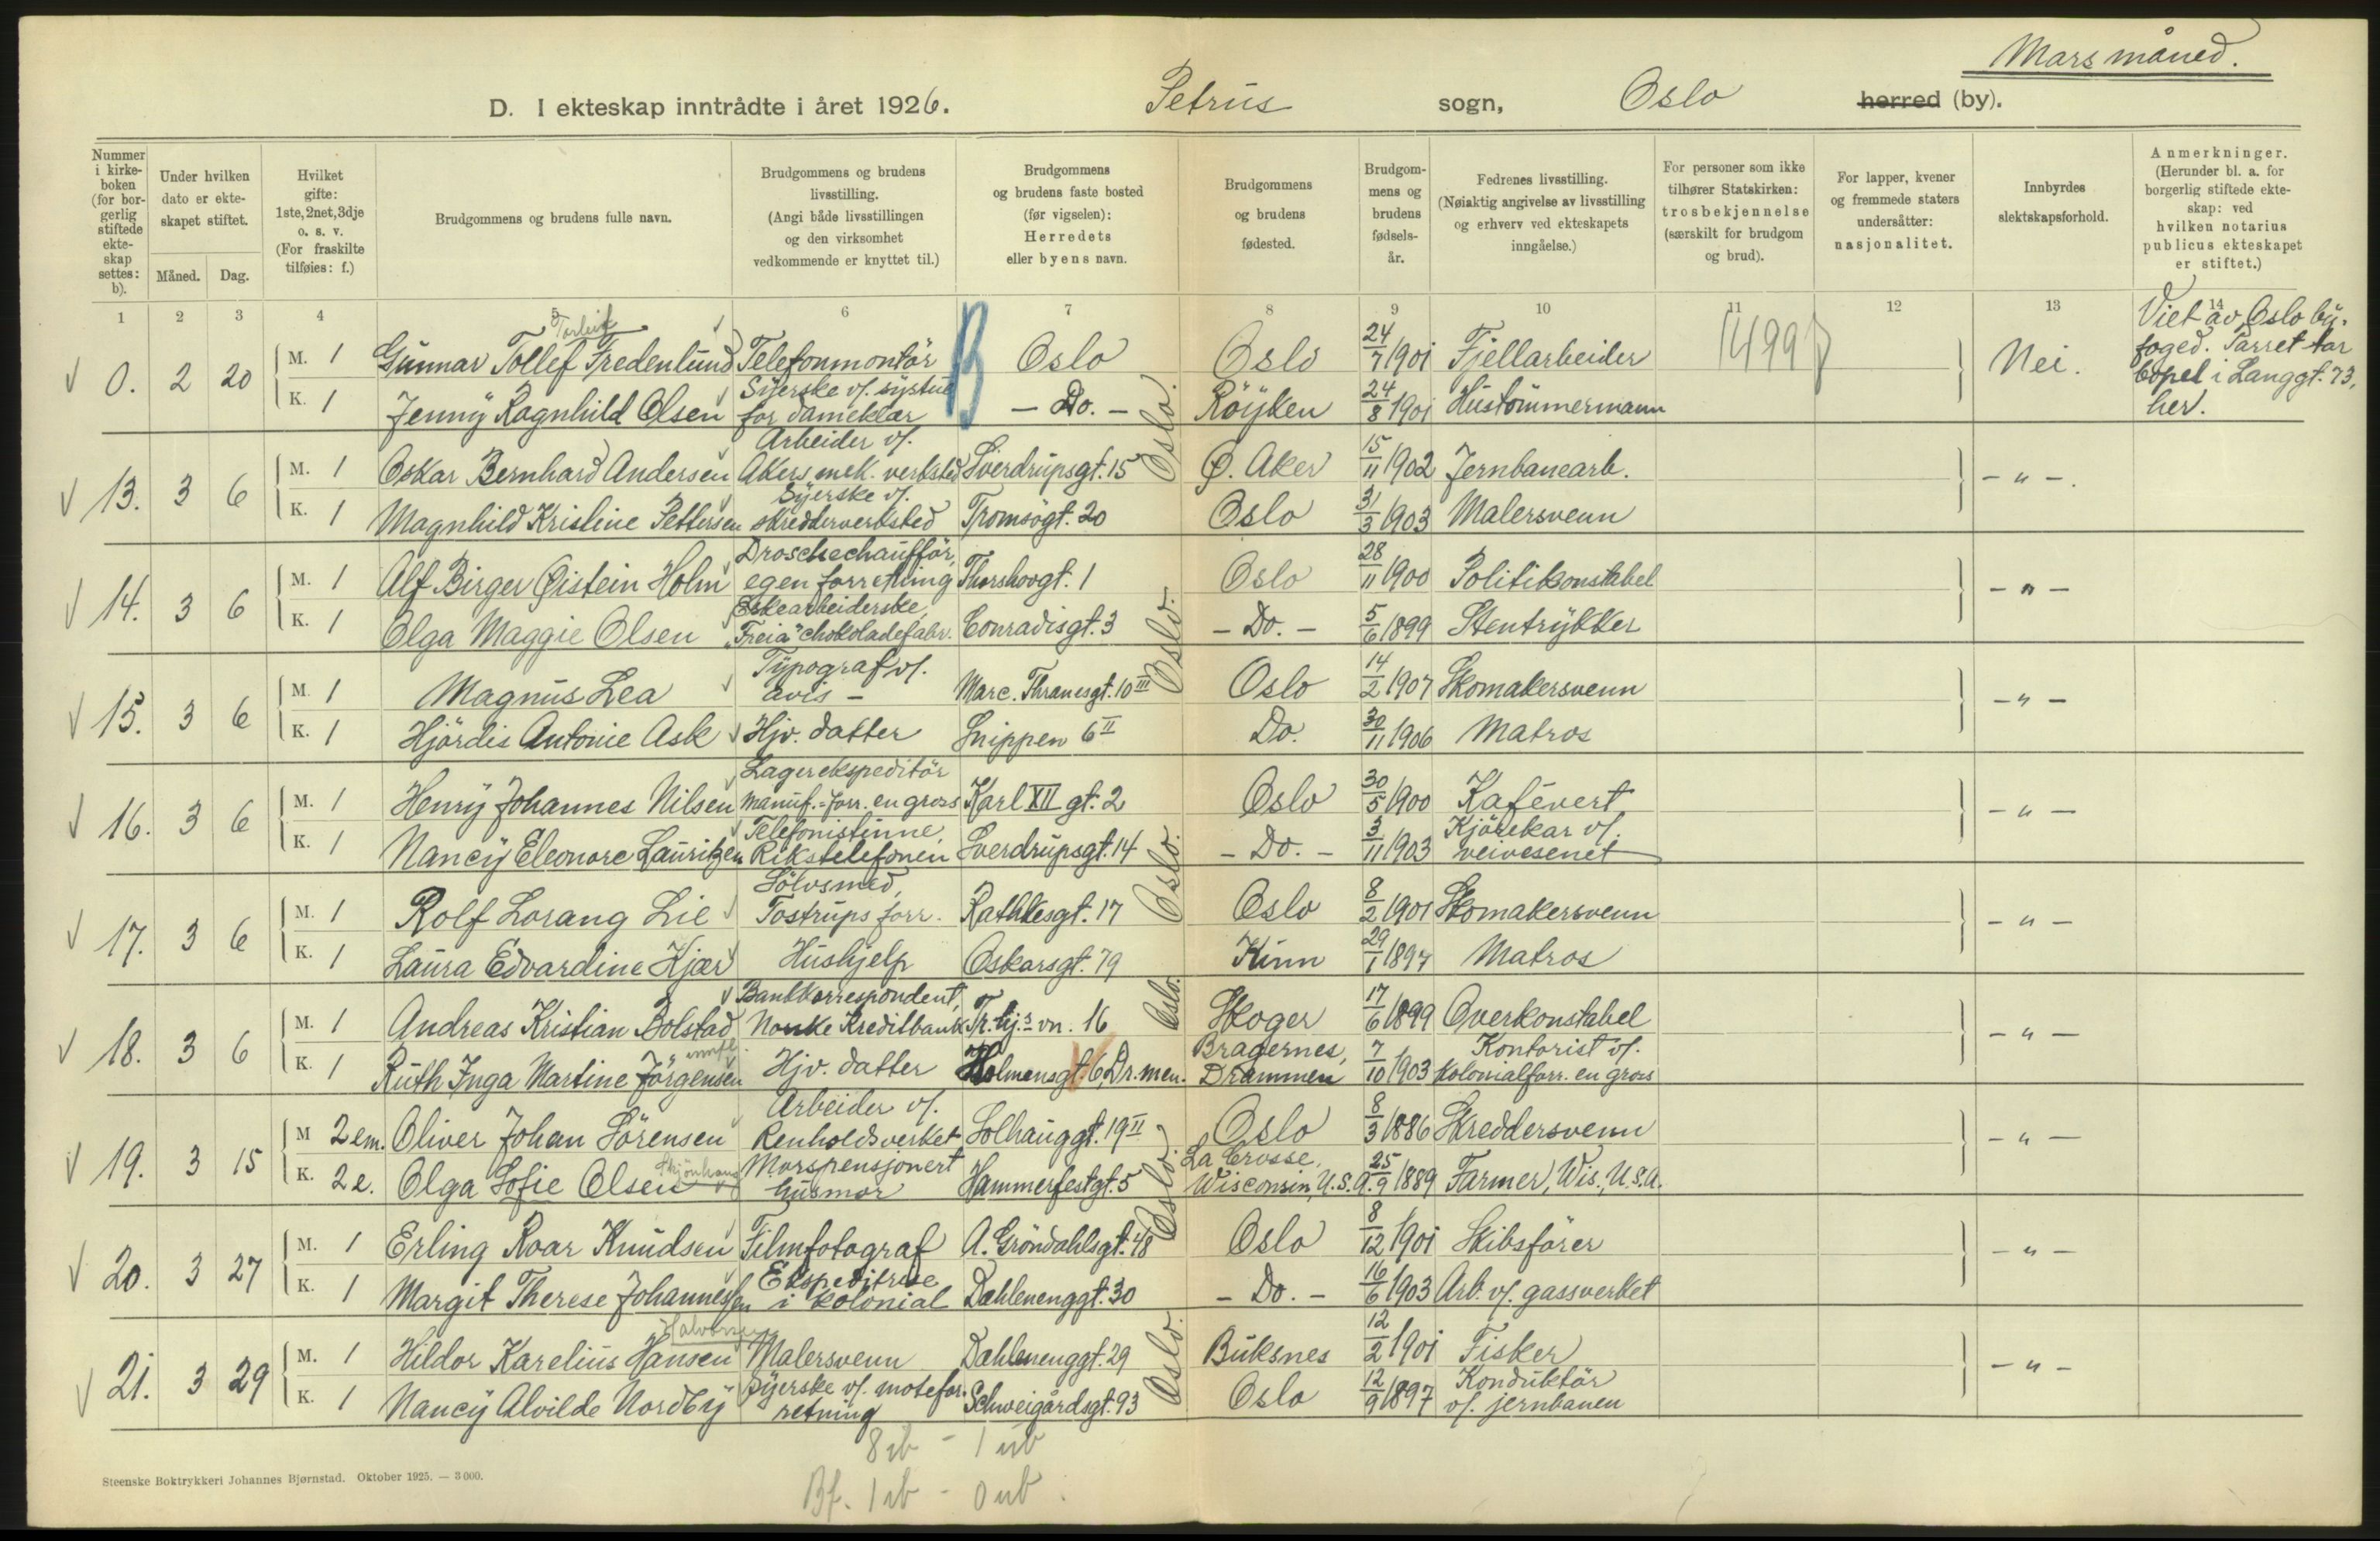 Mars måned.
D. I ekteskap inntrådte i året 1926. Petrus sogn, Oslo herred (by).
Nummer i kirkeboken (for borgerlig stiftede ekteskap settes: b).
Under hvilken dato er ekteskapet stiftet.
Måned. Dag.
Hvilket gifte: 1ste, 2net, 3dje o. s. v. (For fraskilte tilføies: f.)
Brudgommens og brudens fulle navn.
Brudgommens og brudens livsstilling. (Angi både livsstillingen og den virksomhet vedkommende er knyttet til.)
Brudgommens og brudens faste bosted (før vigselen): Herredets eller byens navn.
Brudgommens og brudens fødested.
Brudgommens og brudens fødselsår.
Fedrenes livsstilling. (Nøiaktig angivelse av livsstilling og erhverv ved ekteskapets inngåelse.)
For personer som ikke tilhører Statskirken: trosbekjennelse (særskilt for brudgom og brud).
For lapper, kvener og fremmede staters undersåtter: nasjonalitet.
Innbyrdes slektskapsforhold.
Anmerkninger. (Herunder bl. a. for borgerlig stiftede ekteskap: ved hvilken notarius publicus ekteskapet er stiftet.)
1 2 3 4 5 6 7 8 9 10 11 12 13 14
0. 2 20 M. 1 Gunnar Tollef Fredenlund Torleif Telefonmontör B Oslo Oslo 24/7 1901 Fjellarbeider 1499 Nei. Viet av Oslo byfoged. Parret har bopel i Langgt. 73, her.
K. 1 Jenny Ragnhild Olsen Syerske v/. systue for dameklær - Do. - Röyken 24/8 1901 Hustömmermann
13. 3 6 M. 1 Oskar Bernhard Andersen Arbeider v/. Akers mek. verksted Sverdrupsgt. 15 Oslo. Ø. Aker 15/11 1902 Jernbanearb. - " -.
K. 1 Magnhild Kristine Pettersen Syerske v/. skredderverksted Tromsögt. 20 Oslo 31/3 1903 Malersvenn
14. 3 6 M. 1 Alf Birger Øistein Holm Droschechaufför, egen forretning Thorshovgt. 1 Oslo 28/11 1900 Politikonstabel - " -
K. 1 Olga Maggie Olsen Eskearbeiderske, "Freia" chokoladefabr. Conradisgt. 3 Oslo. - Do. - 5/6 1899 Stentrykker
15. 3 6 M. 1 Magnus Lea Typograf v/. avis - Marc. Thranesgt. 10 III Oslo 14/2 1907 Skomakersvenn - " -
K. 1 Hjördis Antonie Ask Hjv. datter Snippen 6 II Do. 30/11 1906 Matros
16. 3 6 M. 1 Henry Johannes Nilsen Lagerekspeditör manuf.-forr. en gros Karl XII gt. 2 Oslo 30/5 1900 Kafévert - " -
K. 1 Nancy Eleonore Lauritzen Telefonistinne, Rikstelefonen Sverdrupsgt. 14 Oslo. - Do. - 3/11 1903 Kjörekar v/. veivesenet
17. 3 6 M. 1 Rolf Lorang Lie Sölvsmed, Tostrups forr. Rathkesgt. 17 Oslo 8/2 1901 Skomakersvenn - " -
K. 1 Laura Edvardine Kjær Hushjelp Oskarsgt. 79 Kinn 29/1 1897 Matros
18. 3 6 M. 1 Andreas Kristian Bolstad Bankkorrespondent, Norske Kreditbank Tr. hj.s vn. 16 Oslo. Skoger 17/6 1899 Overkonstabel - " -
K. 1 Ruth Inga Martine Jörgensen Hjv. datter Holmensgt. 6, Dr.men. Bragernes, Drammen 7/10 1903 Kontorist v/. kolonialforr. en gros
19. 3 15 M 2 em. Oliver Johan Sörensen Arbeider v/. Renholdsverket Solhauggt. 19 II Oslo 8/3 1886 Skreddersvenn - " -
K. 2 e. Olga Sofie Olsen Morspensjonert husmor Hammerfestgt. 5 Oslo. La Crosse, Wisconsin, U.S.A. 25/9 1889 Farmer, Wis., U.S.A.
20. 3 27 M. 1 Erling Roar Knudsen Filmfotograf A. Gröndahlsgt. 48 Oslo 8/12 1901 Skibsförer - " -
K. 1 Margit Therese Johannessen Ekspeditrise i kolonial Dahlenenggt. 30 - Do. - 16/6 1903 Arb. v/. gassverket
21. 3 29 M. 1 Hildor Karelius Hansen Halvorsen Malersvenn Dahlenenggt. 29 Oslo. Buksnes 12/2 1901 Fisker - " -
K. 1 Nancy Alvilde Nordby Syerske v/. moteforretning Schweigårdsgt. 93 Oslo 12/9 1897 Konduktör v/. jernbanen
8 ib - 1 ub
Bf. 1 ib - 0 ub.
Steenske Boktrykkeri Johannes Bjørnstad. Oktober 1925. — 3000.